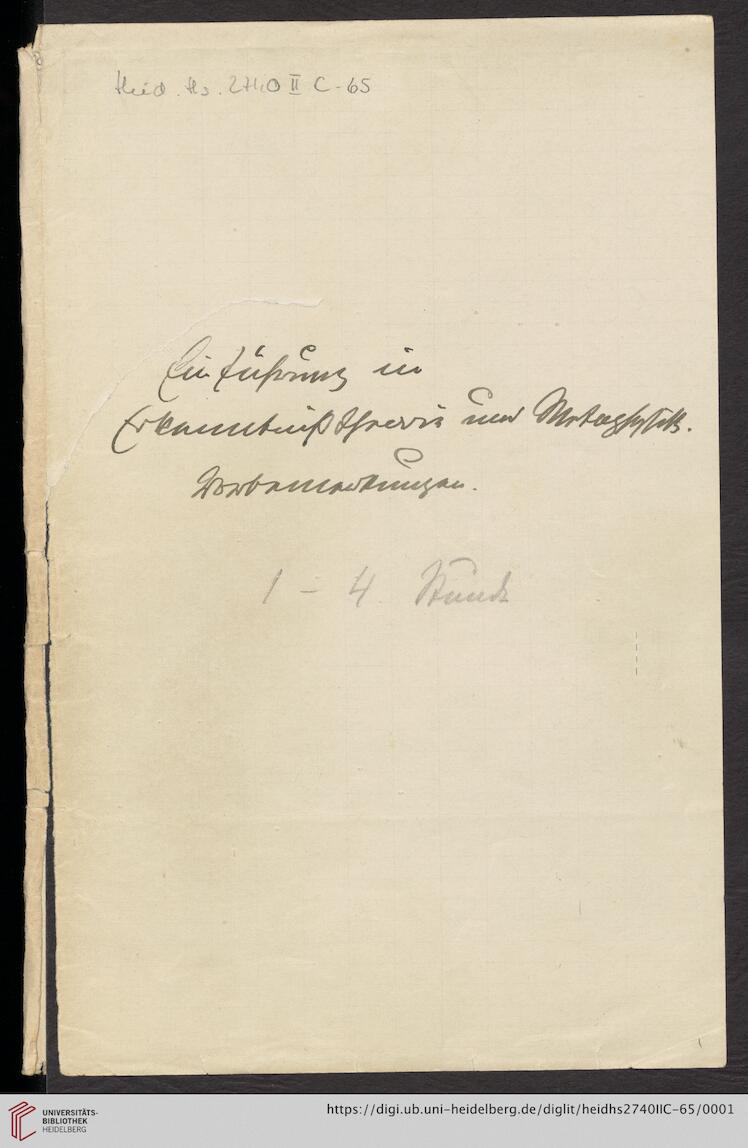 Heid. Hs. 2740 II C-65
Einführung in
Erkenntnißtheorie und Metaphysik.
Vorbemerkungen.
1 – 4. Stunde
1
UNIVERSITÄTS-
BIBLIOTHEK
HEIDELBERG
https://digi.ub.uni-heidelberg.de/diglit/heidhs2740IIC-65/0001